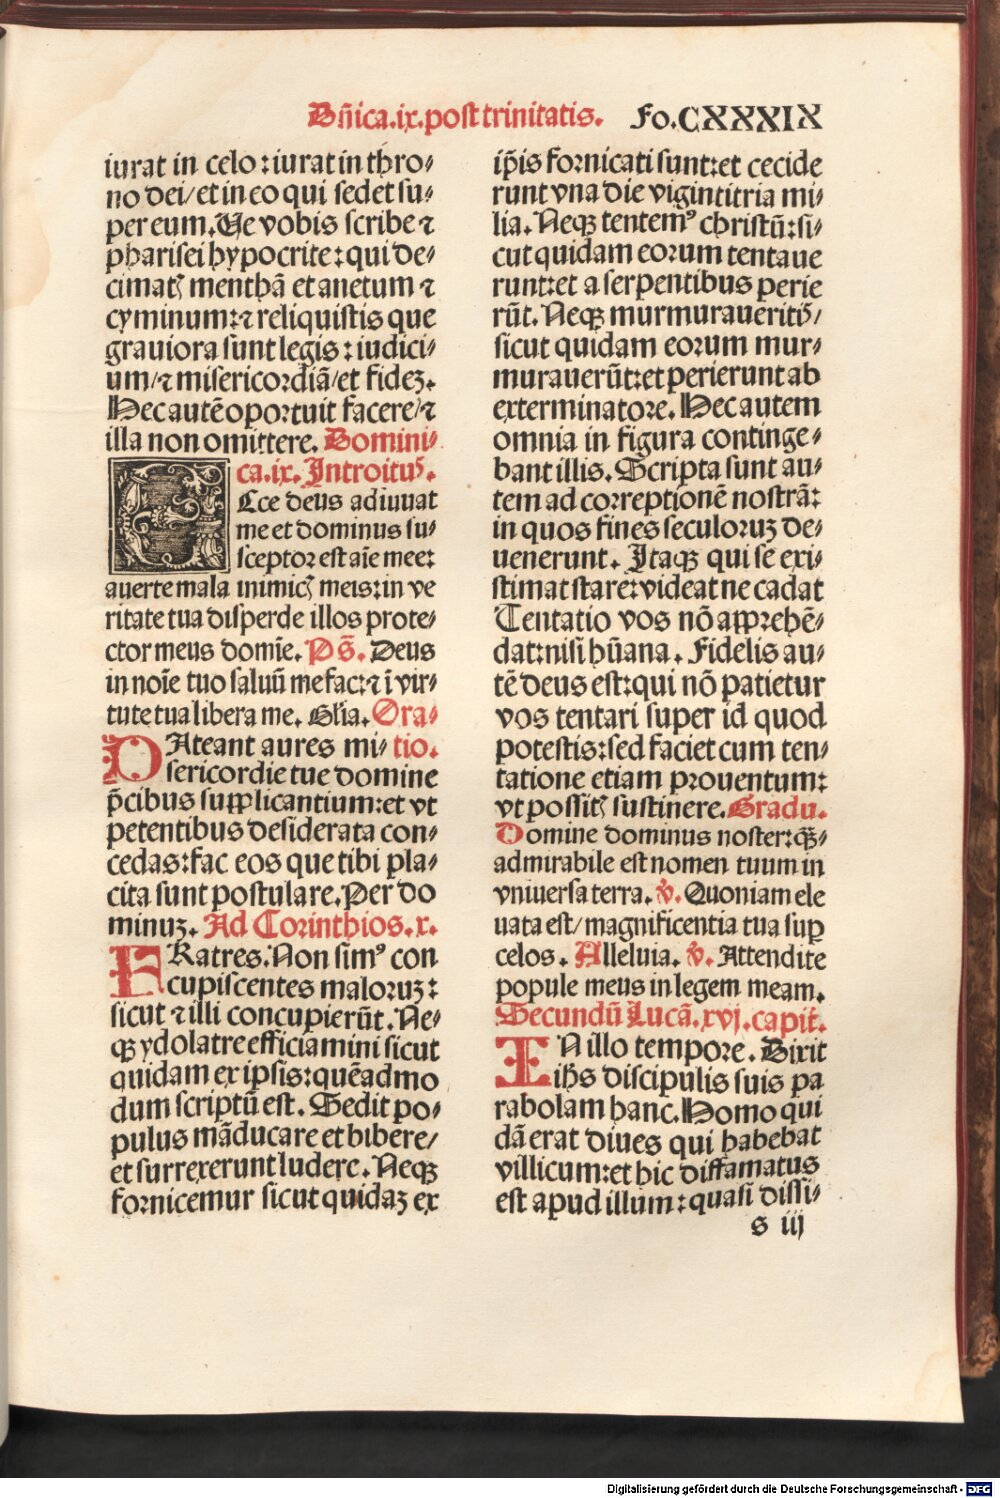 Dñica.ix.post trinitatis. Fo.CXXXIX
iurat in celo: iurat in thro⸗
no dei/et in eo qui sedet su⸗
per eum. Ue vobis scribe ⁊
pharisei hypocrite: qui de⸗
cimatꝭ menthã et anetum ⁊
cyminum: ⁊ reliquistis que
grauiora sunt legis: iudici⸗
um/⁊ misericordiã/et fideꝫ.
Hec autẽ oportuit facere/⁊
illa non omittere. Domini⸗
ca.ix. Introitꝰ.
ECce deus adiuuat
me et dominus su⸗
sceptor est aīe mee:
auerte mala inimicꝭ meis: in ve
ritate tua disperde illos prote⸗
ctor meus domīe. Pš. Deus
in noīe tuo saluũ me fac: ⁊ ī vir⸗
tute tua libera me. Gl̃ia. Ora⸗
PAteant aures mi⸗ tio.
sericordie tue domine
p̃cibus supplicantium: et vt
petentibus desiderata con⸗
cedas: fac eos que tibi pla⸗
cita sunt postulare. Per do
minuꝫ. Ad Corinthios.x.
FRatres. Non simꝰ con
cupiscentes maloruꝫ:
sicut ⁊ illi concupierũt. Ne⸗
qꝫ ydolatre efficiamini sicut
quidam ex ipsis: quẽadmo
dum scriptũ est. Sedit po⸗
pulus mãducare et bibere/
et surrexerunt ludere. Neqꝫ
fornicemur sicut quidaꝫ ex
ip̃is fornicati sunt: et cecide
runt vna die vigintitria mi⸗
lia. Neqꝫ tentemꝰ christũ: si⸗
cut quidam eorum tentaue
runt: et a serpentibus perie
rũt. Neqꝫ murmuraueritꝭ/
sicut quidam eorum mur⸗
murauerũt: et perierunt ab
exterminatore. Hec autem
omnia in figura continge⸗
bant illis. Scripta sunt au⸗
tem ad correptionẽ nostrã:
in quos fines seculoruꝫ de⸗
uenerunt. Itaqꝫ qui se exi⸗
stimat stare: videat ne cadat
Tentatio vos nõ apprehẽ⸗
dat: nisi hũana. Fidelis au⸗
tẽ deus est: qui nõ patietur
vos tentari super id quod
potestis: sed faciet cum ten⸗
tatione etiam prouentum:
vt possitꝭ sustinere. Gradu.
Domine dominus noster: q̃ꝫ⸗
admirabile est nomen tuum in
vniuersa terra. ℣. Quoniam ele
uata est/ magnificentia tua suꝑ
celos. Alleluia. ℣. Attendite
popule meus in legem meam.
Secundũ Lucã.xvj.capit.
IN illo tempore. Dixit
ihs discipulis suis pa
rabolam hanc. Homo qui
dã erat diues qui habebat
villicum: et hic diffamatus
est apud illum: quasi dissi⸗
s iij
Digitalisierung gefördert durch die Deutsche Forschungsgemeinschaft - DFG